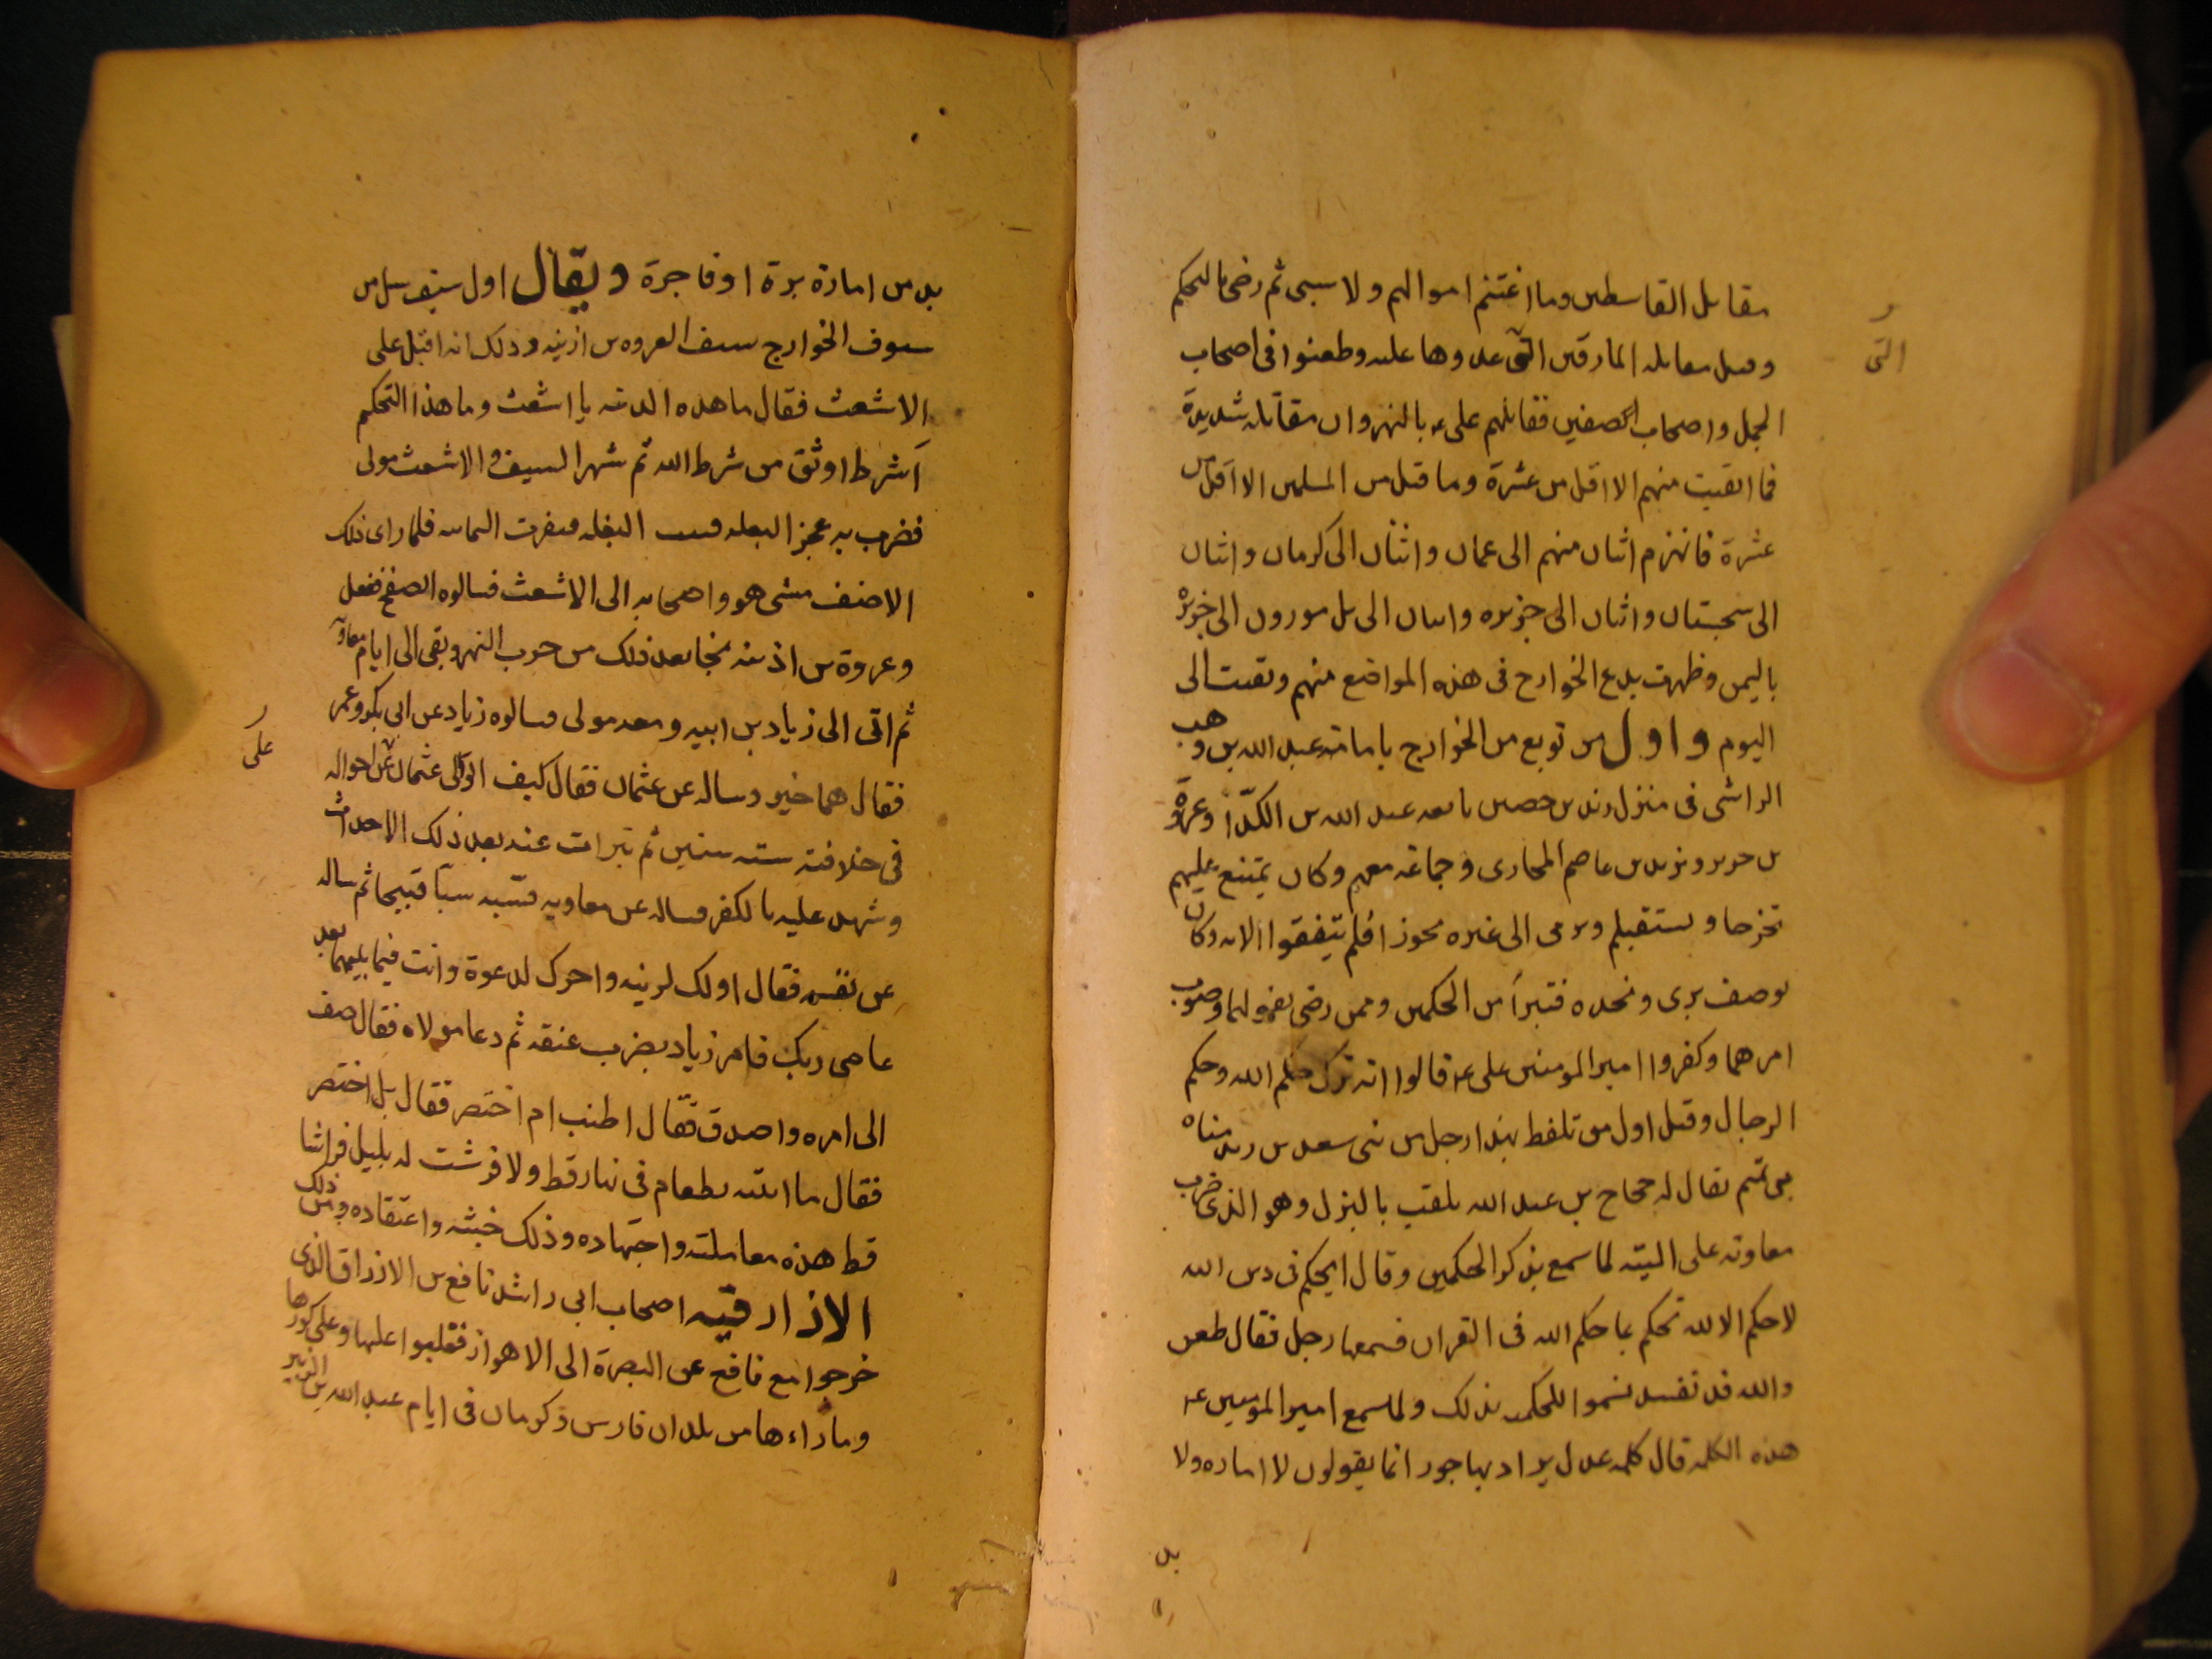 مقاىل القاسطين وما اغتنم اموالهم ولا سبى ثم رضى بالتحكم
وقبل مقاتلة المارقين التى عدوها عليه وطعنوا فى اصحاب
الجمل واصحاب الصفين فقاتلهم على ع بالنهروان مقاتلة شديدة
فما انقيت منهم الا اقل من عشرة وما قتل من المسلمين الا اقل من
عشرة فانهزم اثنان منهم الى عمان واثنان الى كرمان واثنان
الى سجستان واثنان الى جزيره واثنان الى تل مورون الى جزيره
باليمن وظهرت بدع الخوارج فى هذه المواضع منهم وبقيت الى
اليوم واول من بويع من الخوارج بامامته عبد الله بن وهب
الراشى فى منزل زيد بن حصين بايعه عبد الله بن الكدا وعروة
بن جرير ويزيد بن عاصم المحارى وجماعه معهم وكان يمتنع عليهم
تخرجا ويستقبلهم ويومى الى غيره تحوزا فلم يتفقوا الا به وكان
يوصف برى ونجده فتبرأ من الحكمين وممن رضى بقولهما وصوب
امرهما وكفروا امير المومنين على ع قالوا انه ترك حكم الله وحكم
الرجال وقيل اول من تلفظ بهذا رجل من بنى سعد بن زيد مناه
بن تميم يقال له حجاج بن عبد الله يلقب بالبزل وهو الذى ضرب
معاويه على اليته لما سمع بذكر الحكمين وقال ايحكم فى دين الله
لا حكم الا لله تحكم بما حكم الله فى القران فسمعها رجل فقال طعن
والله فد نفسد فسموا المحكمه بذلك ولما سمع امير المومنين ع
هذه الكلمه قال كلمه عدل يراد بها جور انما يقولون لا اماره ولا
بد
التى
بد من امارة برة او فاجرة ويقال اول سيف سل من
سيوف الخوارج سيف العروه بن اذينه وذلك انه اقبل على
الاشعث فقال ما هذه الدنيه يا اشعث وما هذا التحكم
اشرط اوثق من شرط الله ثم شهر السيف والاشعث مولى
فضرب به عجز البغله فشبت البغله فنفرت اليمانيه فلما راى ذلك
الاحنف مشى هو واصحابه الى الاشعث فسالوه الصفح ففعل
وعروة بن اذينه نجا بعد ذلك من حرب النهر وبقى الى ايام معاويه
ثم اتى الى زياد بن ابيه ومعه مولى فسالوه زياد عن ابى بكر وعمر
فقال هما خير وساله عن عثمان فقال كيف اتولى عثمان على احواله
فى خلافته سته سنين ثم تبرات عنه بعد ذلك الاحداث
وشهد عليه بالكفر فساله عن معاويه فسبه سبا قبيحا ثم ساله
عن نفسه فقال اولك لزينه واخرك لدعوة وانت فيما بينهما بعد
عاصى ربك فامر زياد بضرب عنقه ثم دعا مولاه فقال صف
الى امره واصدق فقال اطنب ام اختصر فقال بل اختصر
فقال ما اتيته بطعام فى نهار قط ولا فرشت له بليل فراشا
قط هذه معاملته واجتهاده وذلك خبثه واعتقاده ومن ذلك
الازارقيه اصحاب ابى راشد نافع بن الازراق الذى
خرجوا مع نافع عن البصرة الى الاهواز فغلبوا عليها وعلى كورها
وما وراءها من بلدان فارس وكرمان فى ايام عبد الله بن الزبير
على